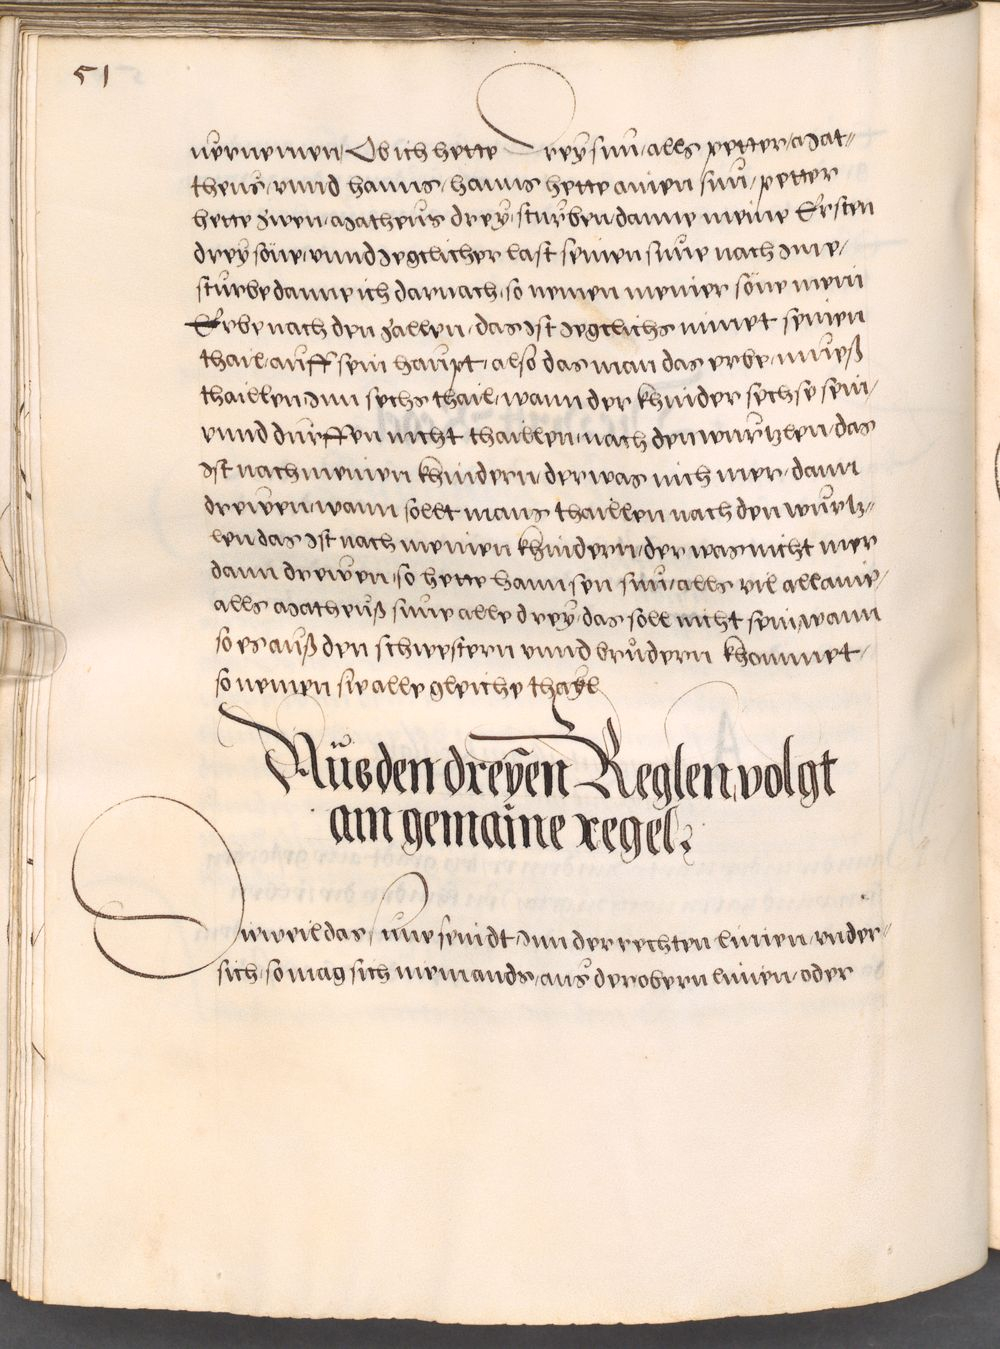 51
vernemen, Ob ich hette Drey sun, alls petter, Mat=
theus, vnnd hanns, hanns hette ainen sun, petter
hette zwen, Matheus drey, sturben danne meine Ersten
drey söne, vnnd Jeglicher last seinen sune nach Ime,
sturbe danne ich darnach, so nemen meiner söne mein
Erbe nach den zallen, das Ist Jeglichs nimet seinen
thail, auff sein haupt, also das man das erbe, mueß
thaillen Inn sechs thail, wann der khinder sechse sein,
vnnd durffen nicht thaillen, nach den wurtzlen, das
Ist nach meinen khindern, der was nich mer, dann
dreyen, wann sollt mans thaillen nach den wurtz=
len das Ist nach meinen khindern, der was nicht mer
dann dreyen, so hette hannsen sun, alls vil allaine,
alls Matheuß sune alle drey, das soll nicht sein, wann
so es auß den schwestern vnnd bruedern khommet,
so nemen sie alle gleiche thayl
Aus den dreyen Reglen, volgt
ain gemaine regel
Dieweil das, sune seindt, Inn der rechten linien, vnder=
sich, so mag sich niemands, aus der obern linien, oder